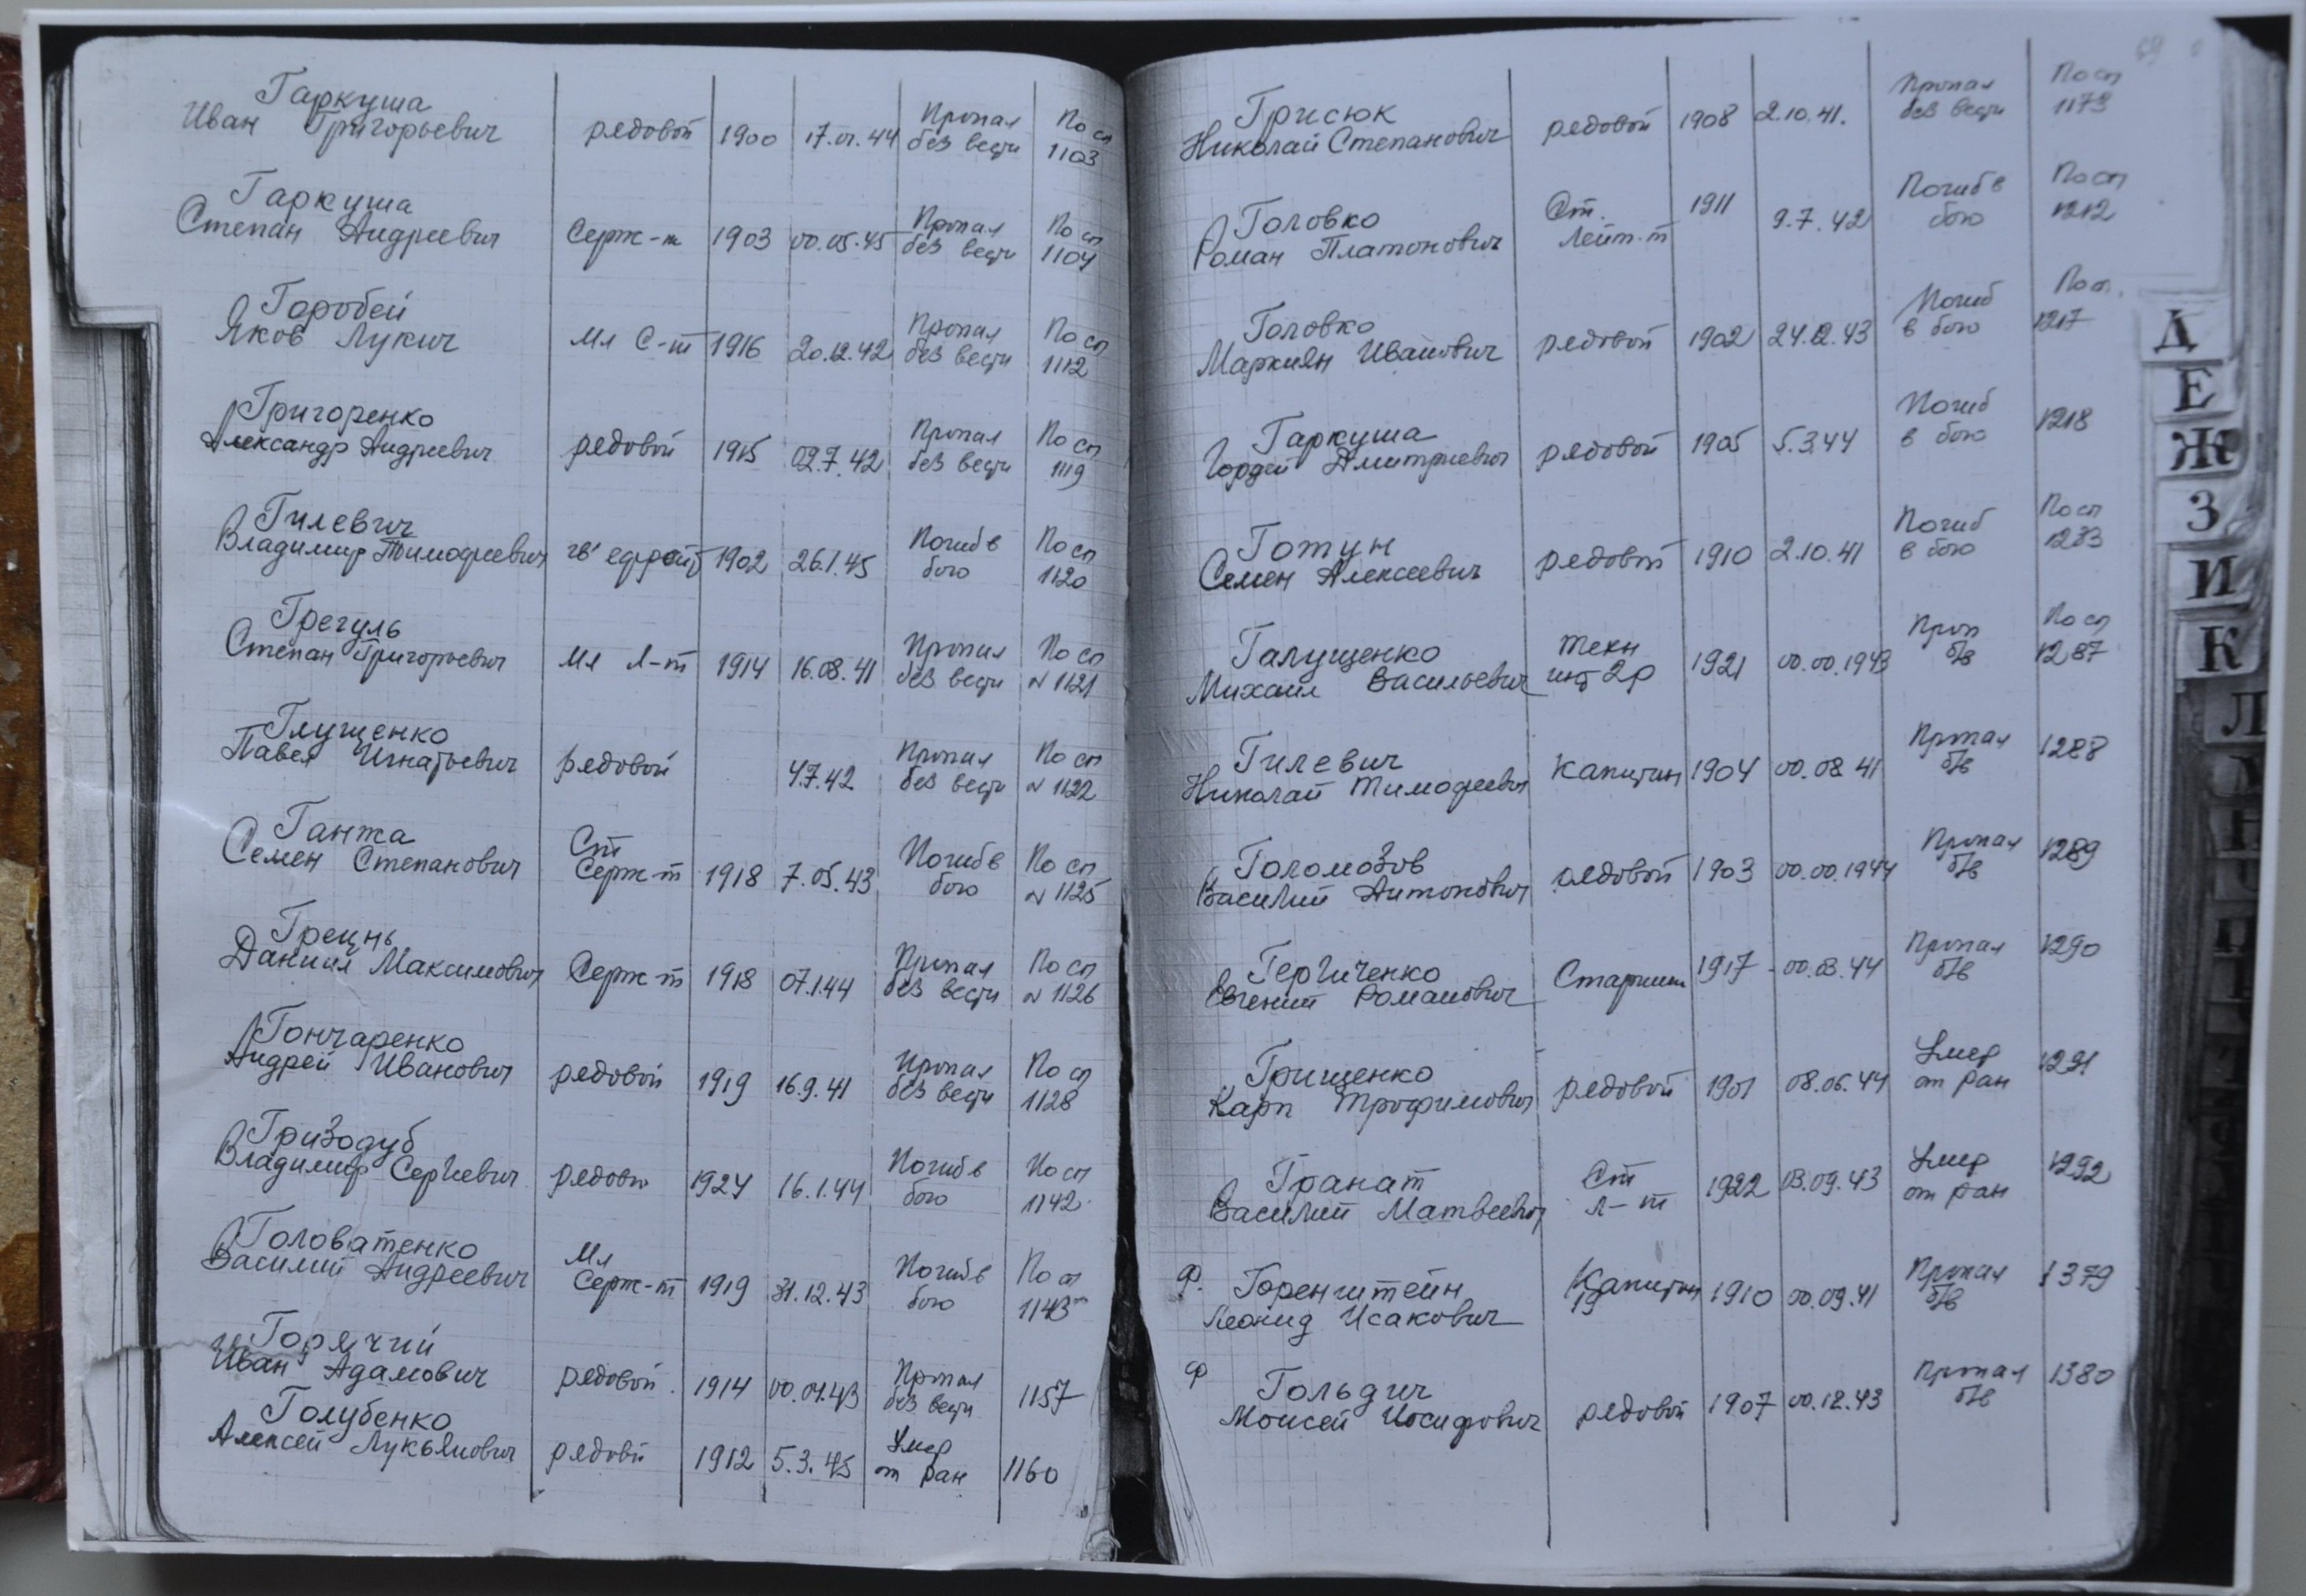 Гаркуша
Иван Григорьевич рядовой 1900 17.01.44 Пропал без вести По сп 1103
Гаркуша
Степан Андреевич Серж-т 1903 00.05.45 Пропал без вести По сп 1104
Горобей
Яков Лукич Мл С-т 1916 20.12.42 Пропал без вести По сп 1112
Григоренко
Александр Андреевич рядовой 1915 02.7.42 Пропал без вести По сп 1119
Гилевич
Владимир Тимофеевич гв. ефрейт 1902 26.1.45 Погиб в бою По сп 1120
Грегуль
Степан Григорьевич Мл Л-т 1914 16.08.41 Пропал без вести По сп № 1121
Глущенко
Павел Игнатьевич рядовой 4.7.42 Пропал без вести По сп № 1122
Ганжа
Семен Степанович Ст Серж-т 1918 7.05.43 Погиб в бою По сп № 1125
Грецнь
Даниил Максимович Серж-т 1918 07.1.44 Пропал без вести По сп № 1126
Гончаренко
Андрей Иванович рядовой 1919 16.9.41 Пропал без вести По сп 1128
Гризодуб
Владимир Сергеевич рядово 1924 16.1.44 Погиб в бою По сп 1142
Головатенко
Василий Андреевич Мл Серж-т 1919 31.12.43 Погиб в бою По сп 1143
Горячий
Иван Адамович рядовой 1914 00.01.43 Пропал без вести 1157
Голубенко
Алексей Лукьянович рядовой 1912 5.3.45 Умер от ран 1160
69
Грисюк
Николай Степанович рядовой 1908 2.10.41. Пропал без вести По сп 1173
Головко
Роман Платонович Ст. Лейт-т 1911 9.7.42 Погиб в бою По сп 1212
Головко
Маркиян Иванович рядовой 1902 24.12.43 Погиб в бою По сп. 1217
Гаркуша
Гордей Дмитриевич рядовой 1905 5.3.44 Погиб в бою 1218
Готун
Семен Алексеевич рядовой 1910 2.10.41 Погиб в бою По сп 1233
Галущенко
Михаил Васильевич техн инт 2р 1921 00.00.1943 Проп б/в По сп 1287
Гилевич
Николай Тимофеевич Капитан 1904 00.08.41 Пропал б/в 1288
Голомозов
Василий Антонович рядовой 1903 00.00.1944 Пропал б/в 1289
Гергиченко
Евгений Романович Старшин 1917 00.03.44 Пропал б/в 1290
Грищенко
Карп Трофимович рядовой 1901 08.06.44 Умер от ран 1291
Гранат
Василий Матвеевич Ст Л-т 1922 03.09.43 Умер от ран 1292
Ф. Горенштейн
Леонид Исакович Капитан 19 1910 00.09.41 Пропал б/в 1379
Ф Гольдич
Моисей Иосифович рядовой 1907 00.12.43 Пропал б/в 1380
Д
Е
Ж
З
И
К
Л